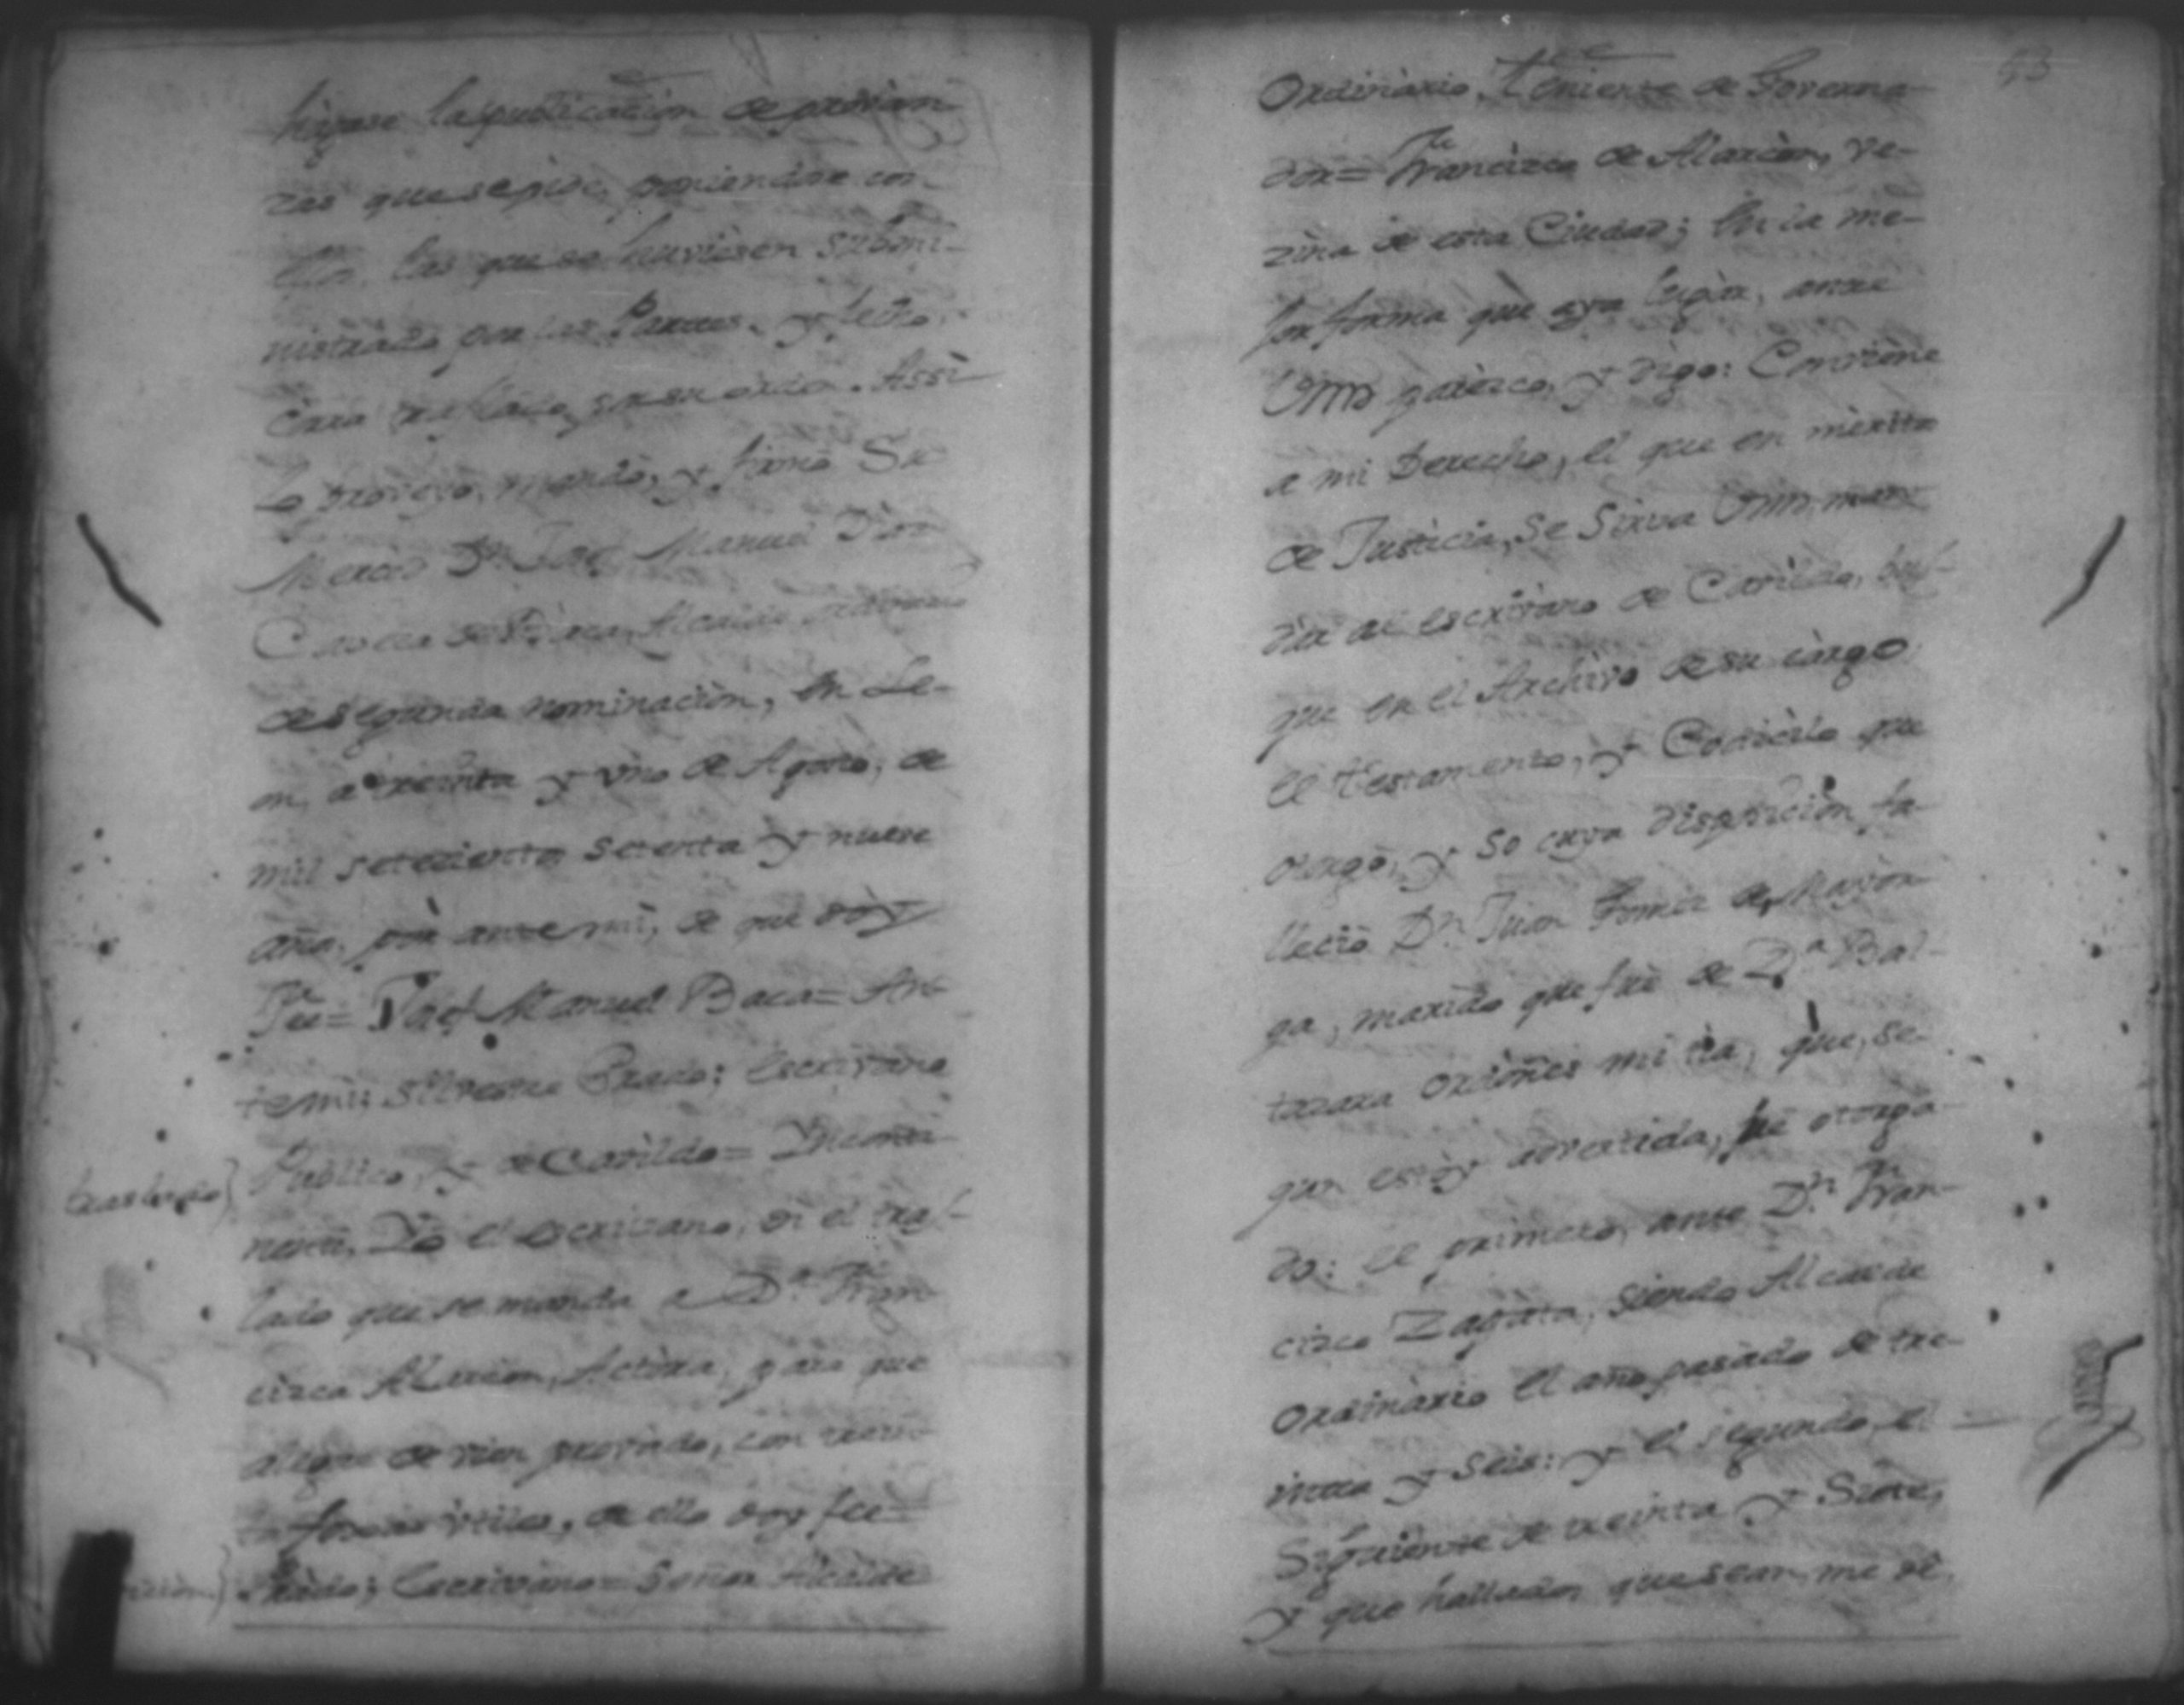 hagase la publicacion de provan
zas que se pide, poniendose con
ellas las que se huviesen submi-
nistrado por las Partes, y fecho,
corra traslado por su orden. Assi
lo proveyo, mando, y firmo Su
Merced Dn. Jph Manuel
Alcalde ordinario
de segunda nominacion, en Le-
on, a treinta y uno de Agosto, de
mil setecientos setenta y nueve
años, por ante mi, de que doy
Fee= Jph Manuel Baca= An-
te mi: Silvestre Prado; Escrivano
Publico, y de Cavildo= Yncontì-
nenti, Yo el Escrivano, di el tras-
Traslado}
lado que se manda a Da. Fran-
cisca Alarcon, Actora, para que
alegue de bien provado, con
forma, de ello doy fee=
Prado; Escrivano= Señor Alcalde
53
Ordinario, Teniente de Governa-
dor= Francisca de Alarcon, Ve-
zina de esta Ciudad; En la me-
jor forma que aya lugar, ante
Vmd parezco, y digo: Conviene
a mi Derecho, el que en merito
de Justicia, Se Sirva Vmd man-
dar al escrivano de Cavildo, bus-
que en el Archivo de su cargo
el testamento, y Codicilo que
otorgò, y so cuya disposicion fa-
llecio Dn. Juan Gomez de Mayor-
ga, marido que fue de Da. Bal-
tazara Ordoñes mi tia, que, se-
gun estoy advertida, fue otorga-
do: el primero, ante Dn. Fran-
cisco Zapata, siendo Alcalde
Ordinario el año pasado de tre-
inta y seis: y el segundo, el
Siguiente de treinta y Siete,
y que hallados que sean, me dè